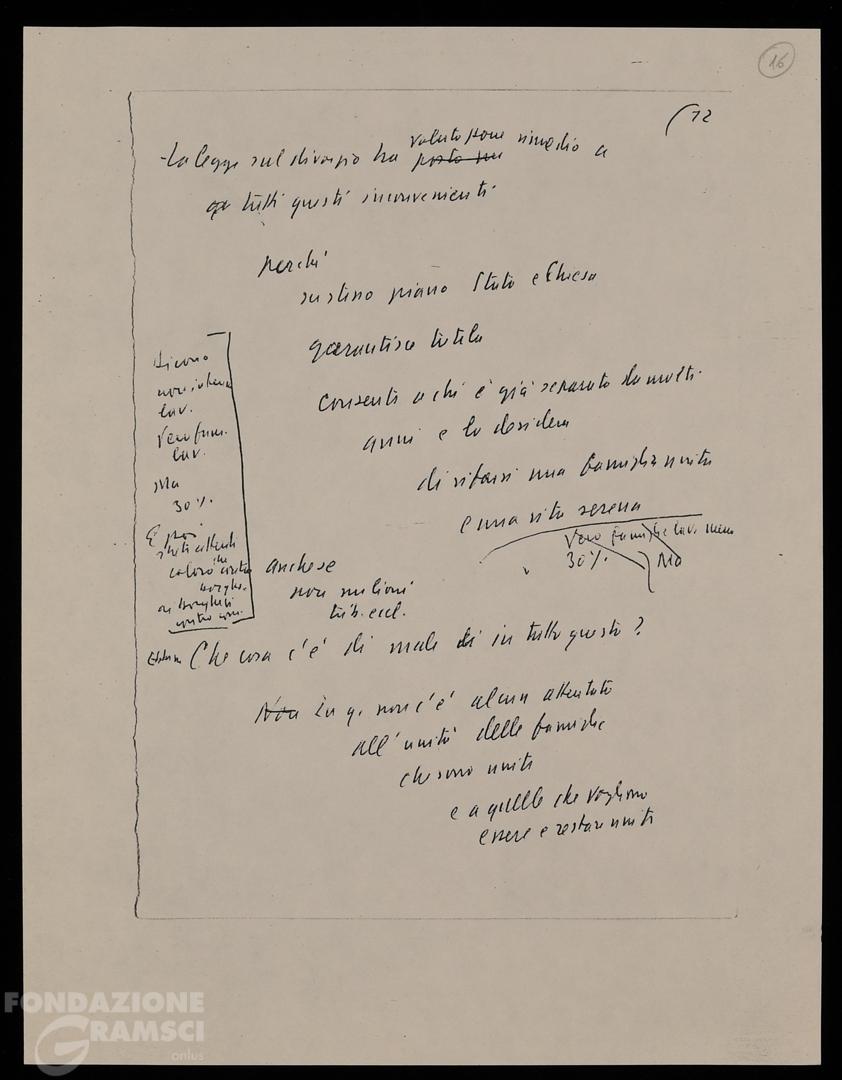 16
12
- La legge sul divorzio ha voluto porre rimedio a
posto
tutti questi inconvenienti
perché
su stesso piano Stato e Chiesa
garantisce tutela
consente a chi è già separato da molti
anni e lo desidera
di rifarsi una famiglia unita
e una vita serena
Vero famiglie lav. meno
30% Ma
Dicono
non interessa
lav.
Vero fam.
lav.
Ma
30%
E poi
stati attenti
coloro che
contro
borghe.
contro
anche se
non milioni
trib. eccl.
Che cosa c'è di male di in tutto questo?
Non In q. non c'è alcun attentato
all'unità delle famiglie
che sono unite
e a quelle che vogliono
essere e restare unite
FONDAZIONE
GRAMSCI
onlus